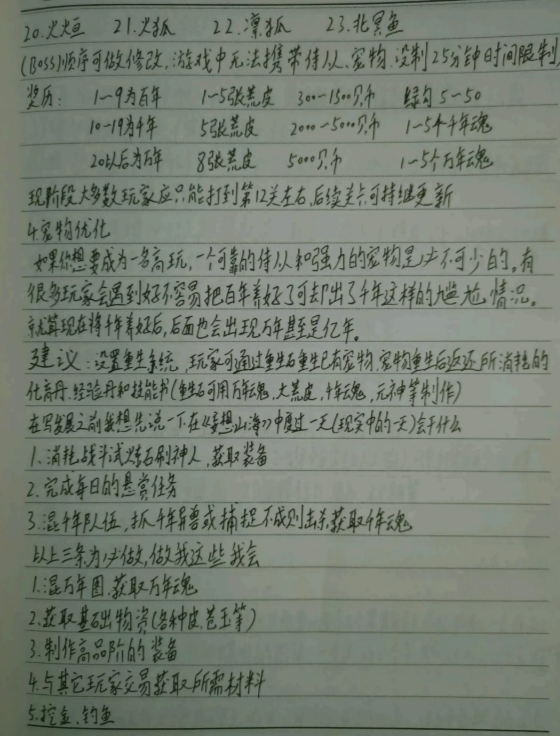 20.火烜 21.火狐 22.凛狐 23.北冥鱼
(Boss)顺序可做修改,游戏中无法携带侍从、宠物,设制25分钟时间限制
奖历: 1—9为百年 1—5张荒皮 300—1500贝币 绿勾5—50
10—19为千年 5张荒皮 2000—5000贝币 1—5个千年魂
20以后为万年 8张荒皮 5000贝币 1—5个万年魂
现阶段大多数玩家应只能打到第12关左右,后续关卡可持继更新
4.宠物优化
如果你想要成为一名高玩,一个可靠的侍从和强力的宠物是必不可少的。有
很多玩家会遇到好不容易把百年养好了可却出了千年这样的尴尬情况。
就算现在将千年养好后,后面也会出现万年甚至是亿年。
建议:设置重生系统,玩家可通过重生石重生已有宠物,宠物重生后返还所消耗的
化育丹、经验丹和技能书(重生石可用万年魂,大荒皮,千年魂,元神等制作)
在写发展之前我想先说一下在《妄想山海》中度过一天(现实中的一天)会干什么
1.消耗战斗试炼石刷神人,获取装备
2.完成每日的悬赏任务
3.混千年队伍,抓千年异兽或捕捉不成则击杀获取千年魂
以上三条为必做,做我这些我会
1.混万年图,获取万年魂
2.获取基础出物资(各种皮,苍玉等)
3.制作高品阶的装备
4.与其它玩家交易获取所需材料
5.挖金、钓鱼